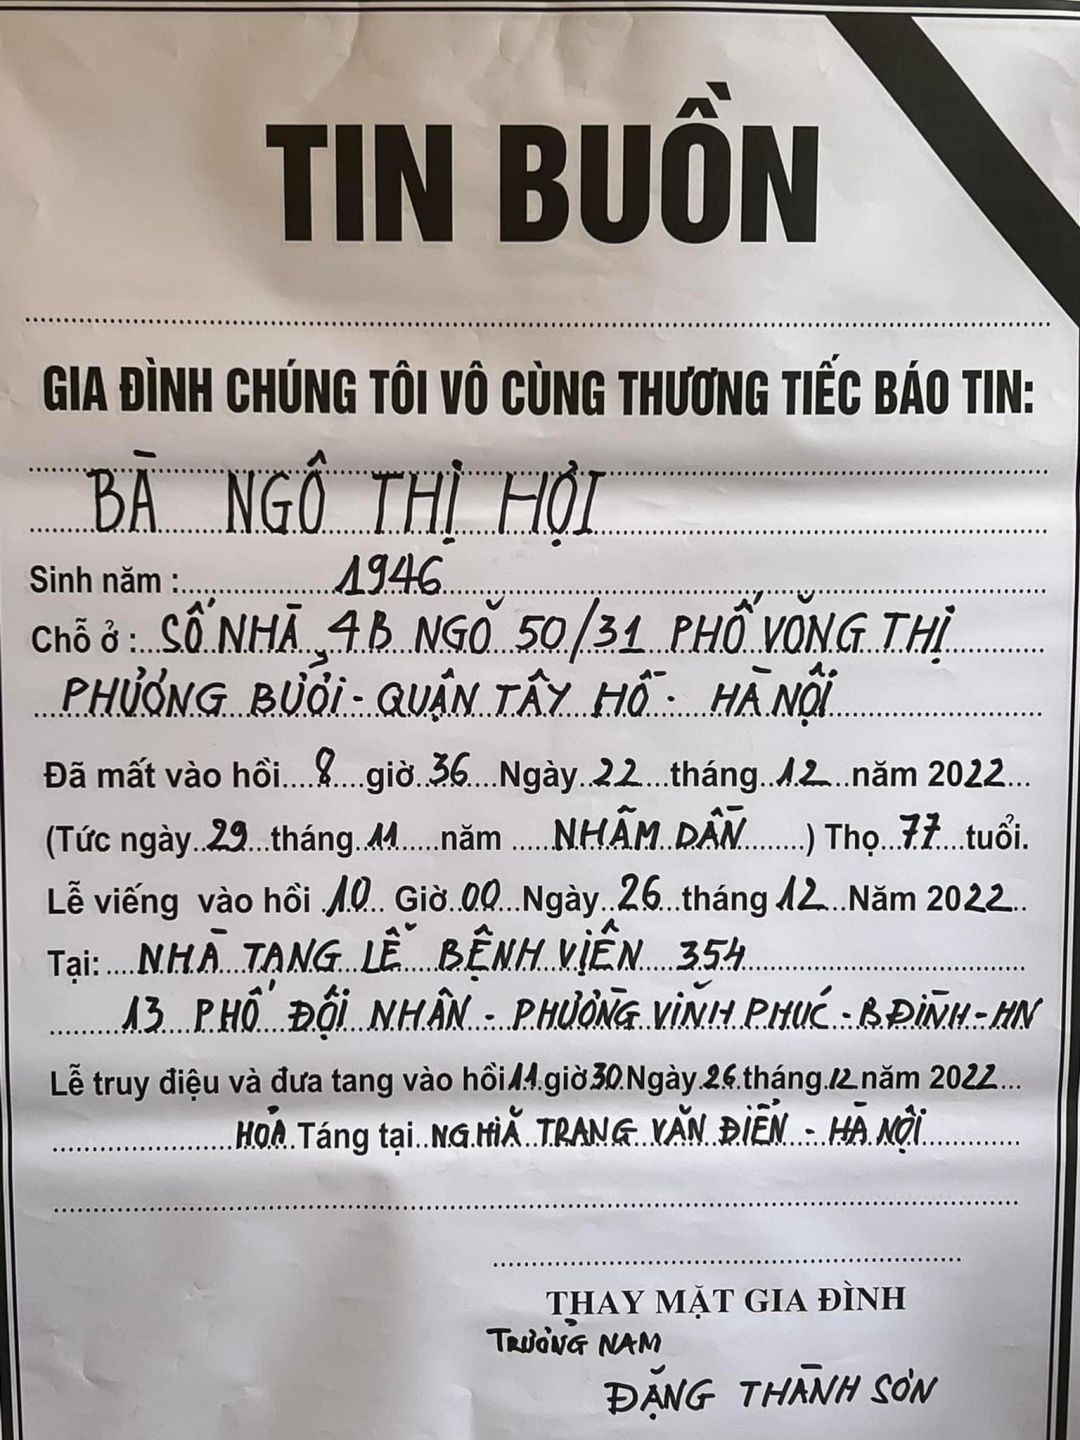 TIN BUỒN
GIA ĐÌNH CHÚNG TÔI VÔ CÙNG THƯƠNG TIẾC BÁO TIN:
BÀ NGÔ THỊ HỢI
Sinh năm : 1946
Chỗ ở : SỐ NHÀ 4B NGÕ 50/31 PHỐ VÕNG THỊ
PHƯỜNG BƯỞI - QUẬN TÂY HỒ - HÀ NỘI
Đã mất vào hồi 8 giờ 36 Ngày 22 tháng 12 năm 2022
(Tức ngày 29 tháng 11 năm NHÂM DẦN ) Thọ 77 tuổi.
Lễ viếng vào hồi 10 Giờ 00 Ngày 26 tháng 12 Năm 2022
Tại: NHÀ TANG LỄ BỆNH VIỆN 354
13 PHỐ ĐỘI NHÂN - PHƯỜNG VĨNH PHÚC - B ĐÌNH - HN
Lễ truy điệu và đưa tang vào hồi 11 giờ 30 Ngày 26 tháng 12 năm 2022
HOẢ Táng tại NGHĨA TRANG VĂN ĐIỂN - HÀ NỘI
THAY MẶT GIA ĐÌNH
TRƯỞNG NAM
ĐẶNG THÀNH SƠN